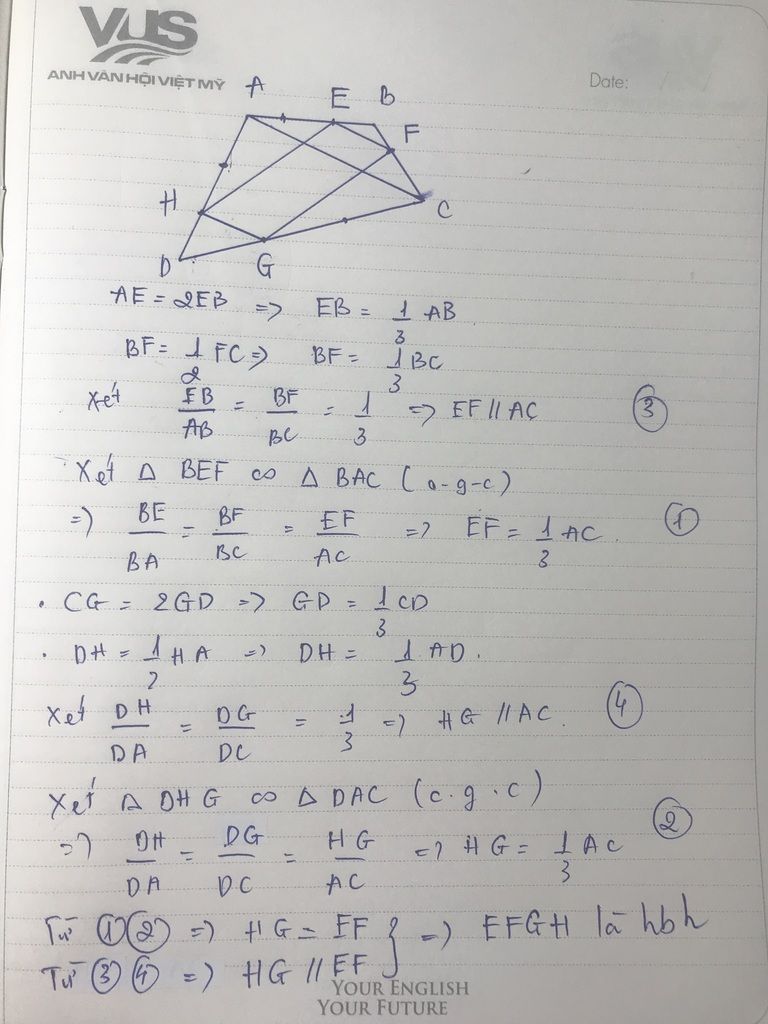 VUS
ANH VĂN HỘI VIỆT MỸ
Date: / /
A E B
F
H C
D G
AE = 2EB => EB = 1/3 AB
BF = 1/2 FC => BF = 1/3 BC
Xét EB/AB = BF/BC = 1/3 => EF // AC ③
Xét Δ BEF ∽ Δ BAC (c-g-c)
=> BE/BA = BF/BC = EF/AC => EF = 1/3 AC. ①
. CG = 2GD => GD = 1/3 CD
. DH = 1/2 HA => DH = 1/3 AD.
Xét DH/DA = DG/DC = 1/3 => HG // AC. ④
Xét Δ DHG ∽ Δ DAC (c.g.c)
=> DH/DA = DG/DC = HG/AC => HG = 1/3 AC ②
Từ ① ② => HG = EF } => EFGH là hbh
Từ ③ ④ => HG // EF
YOUR ENGLISH
YOUR FUTURE